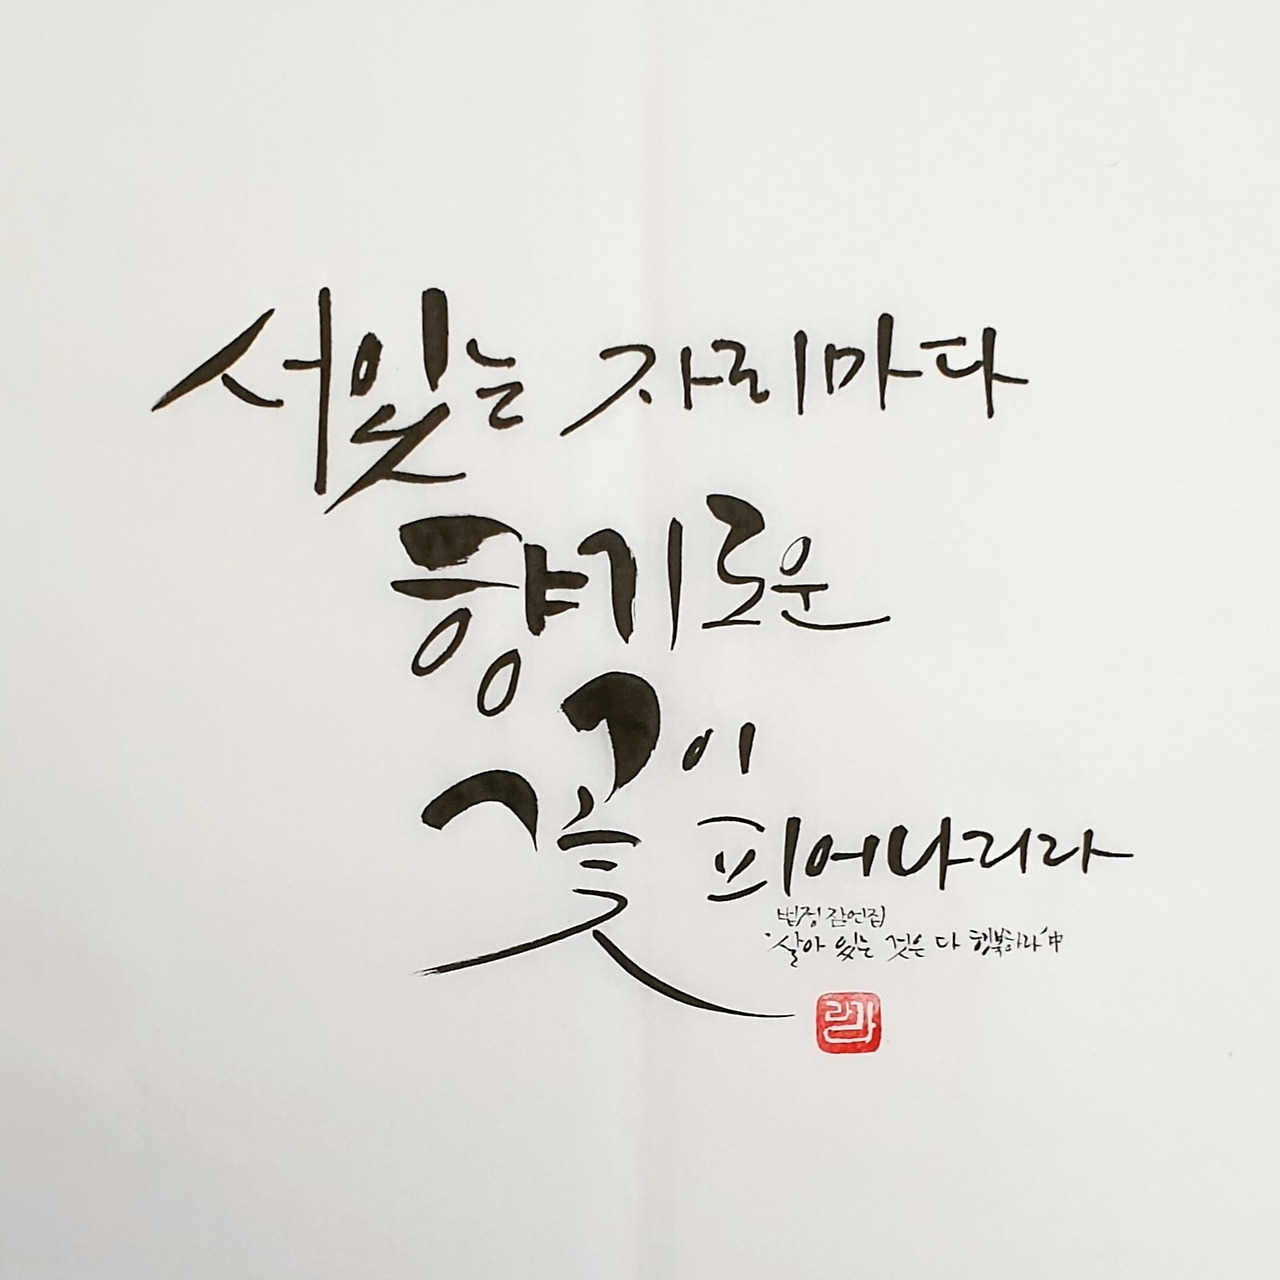 서있는 자리마다
향기로운
꽃이
피어나리라
법정 잠언집
'살아 있는 것은 다 행복하라'中